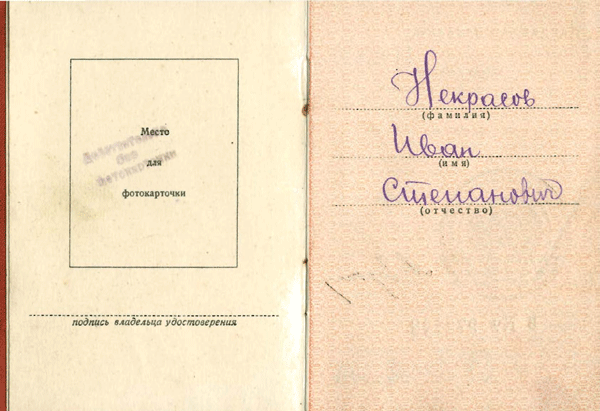 Место
для
фотокарточки
Действительно
без
фотокарточки
подпись владельца удостоверения
Некрасов
(фамилия)
Иван
(имя)
Степанович
(отчество)